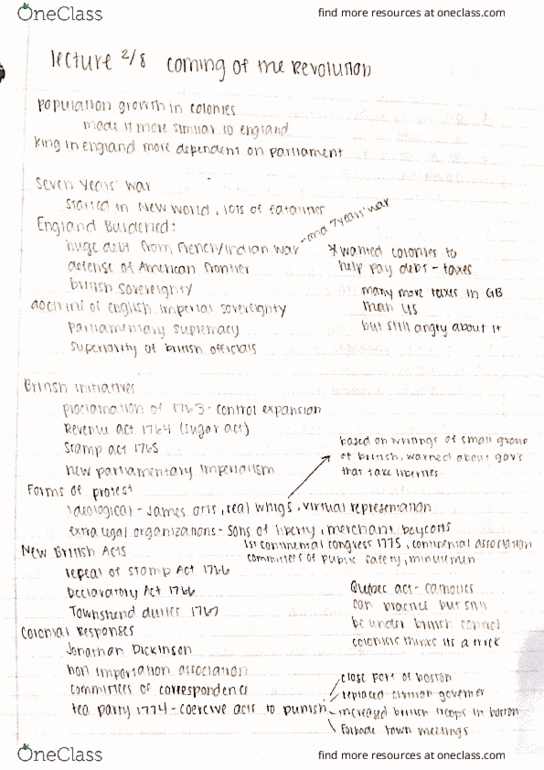 OneClass
find more resources at oneclass.com
lecture 2/8 coming of the Revolution
population growth in colonies
made it more similar to england
king in england more dependent on parliament
Seven Years' War
started in New World, lots of fatalities
England Burdened:
huge debt from French/Indian War - and 7 years' war
defense of American frontier
british sovereignty
*wanted colonies to
help pay debt - taxes
many more taxes in GB
than US
but still angry about it
doctrine of english imperial sovereignty
parliamentary supremacy
superiority of british officials
British initiatives
proclamation of 1763 - control expansion
Revenue act 1764 (sugar act)
Stamp act 1765
new parliamentary imperialism
based on writings of small group
of british, warned about gov's
that take liberties
Forms of protest
Ideological - James otis, real whigs, virtual representation
extralegal organizations - sons of liberty, merchant boycotts
1st continental congress 1775, continental association
committees of public safety, minutemen
New British Acts
repeal of Stamp Act 1766
Declaratory Act 1766
Townshend duties 1767
Quebec act - catholics
can practice but still
be under british control
colonists thinks its a trick
Colonial Responses
Jonathan Dickinson
non importation association
committees of correspondence
tea party 1774 - coercive acts to punish
close Port of boston
replaced civilian governor
increased british troops in boston
forbade town meetings
OneClass
find more resources at oneclass.com